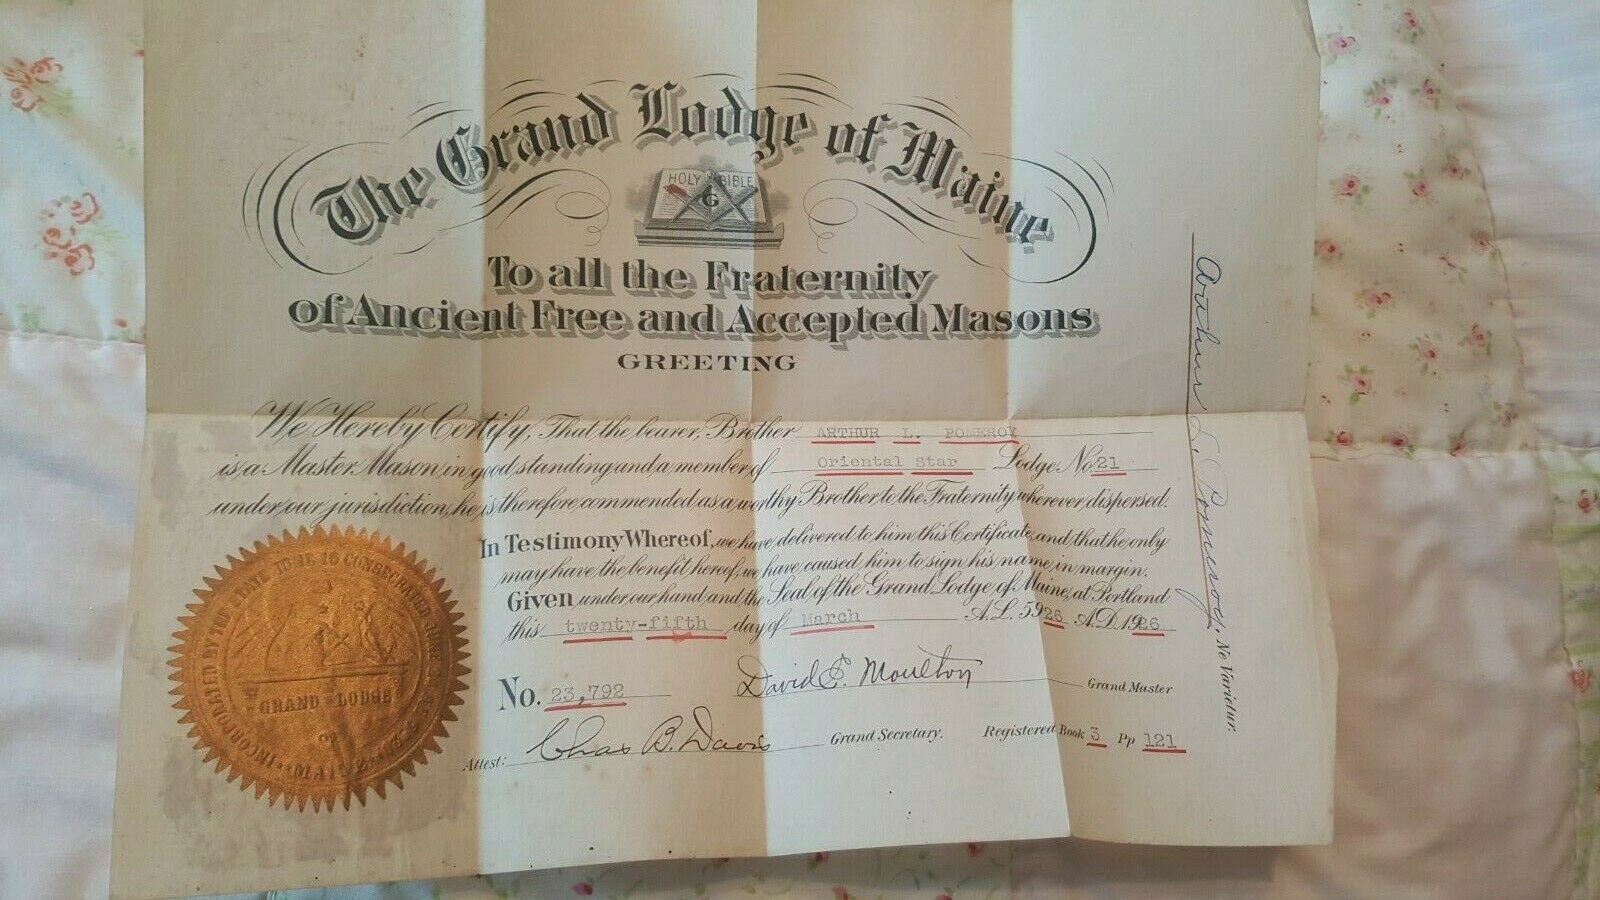 The Grand Lodge of Maine
HOLY BIBLE
G
To all the Fraternity
of Ancient Free and Accepted Masons
GREETING
We Hereby Certify, That the bearer, Brother ARTHUR L. POMEROY
is a Master Mason, in good standing and a member of Oriental Star Lodge No. 21
under our jurisdiction, he is therefore commended as a worthy Brother to the Fraternity wherever dispersed.
In Testimony Whereof, we have delivered to him this Certificate, and that he only
may have the benefit hereof, we have caused him to sign his name in margin.
Given under our hand and the Seal of the Grand Lodge of Maine, at Portland
this twenty-fifth day of March A.L. 5926 A.D. 1926
No. 23,792 David E. Moulton Grand Master
Attest: Chas B. Davis Grand Secretary. Registered Book 3 Pp 121
Arthur L. Pomeroy, Ne Varietur.
INCORPORATED BY THE STATE JUNE 16 CONSECRATED JUNE
GRAND LODGE
OF
MAINE